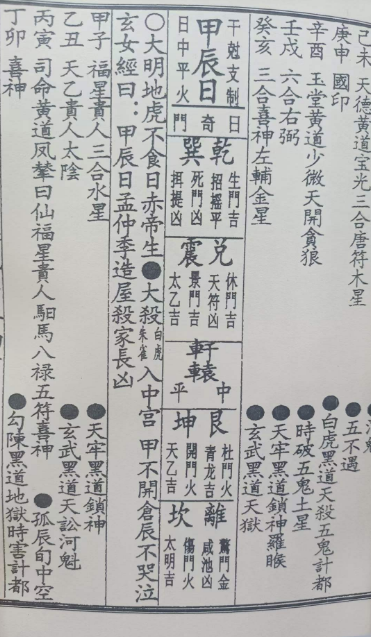 己未 天德黃道宝光三合唐符木星 ●五不遇
庚申 國印 ●白虎黑道天殺五鬼計都
辛酉 玉堂黃道少微天開貪狼 ●時破五鬼土星
壬戌 六合右弼 ●天牢黑道鎖神羅睺
癸亥 三合喜神左輔金星 ●玄武黑道天獄
干尅支制
甲辰日
日中平火
日奇門
乾 生門吉 招摇平
巽 死門凶 提凶
兌 休門吉 天符凶
震 景門吉 太乙吉
軒轅 中平
艮 杜門火 青龙吉
坤 開門火 天乙吉
離 驚門金 咸池凶
坎 傷門火 太明吉
○大明地虎不食日赤帝生●大殺白虎朱雀入中宮 甲不開倉辰不哭泣
玄女經曰：甲辰日孟仲季造屋殺家長凶
甲子 福星貴人三合水星 ●天牢黑道鎖神
乙丑 天乙貴人太陰 ●玄武黑道天訟河魁
丙寅 司命黃道凤輦日仙福星貴人馹馬八禄五符喜神 ●孤辰旬中空
丁卯 喜神 ●勾陳黑道地獄時害計都